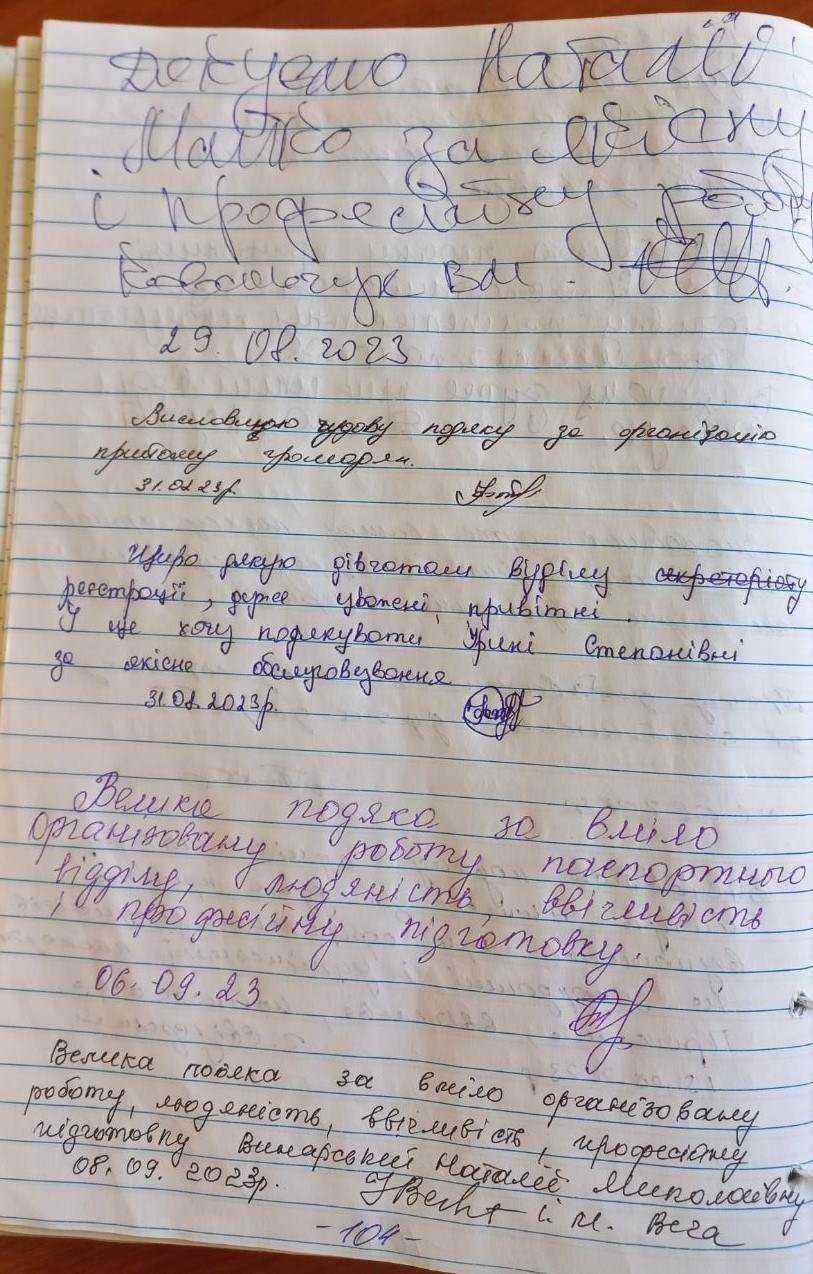 Дякуємо Наталії
Малко за якісну
і професійну роботу
Ковальчук ВМ.
29.08.2023
Висловлюю чудову подяку за організацію
прийому громадян.
31.08.23р.
Щиро дякую дівчатам відділу секретаріату
реєстрації, дуже уважені, привітні.
І ще хочу подякувати Ірині Степанівні
за якісне обслуговування
31.08.2023р.
Велика подяка за вміло
організовану роботу паспортного
відділу, людяність, ввічливість
і профжсійну підготовку.
06.09.23
Велика подяка за вміло організовану
роботу, людяність, ввічливість, професіону
підготовку Винарській Наталії Миколаївну
08.09.2023р. і м. Вега
-104-